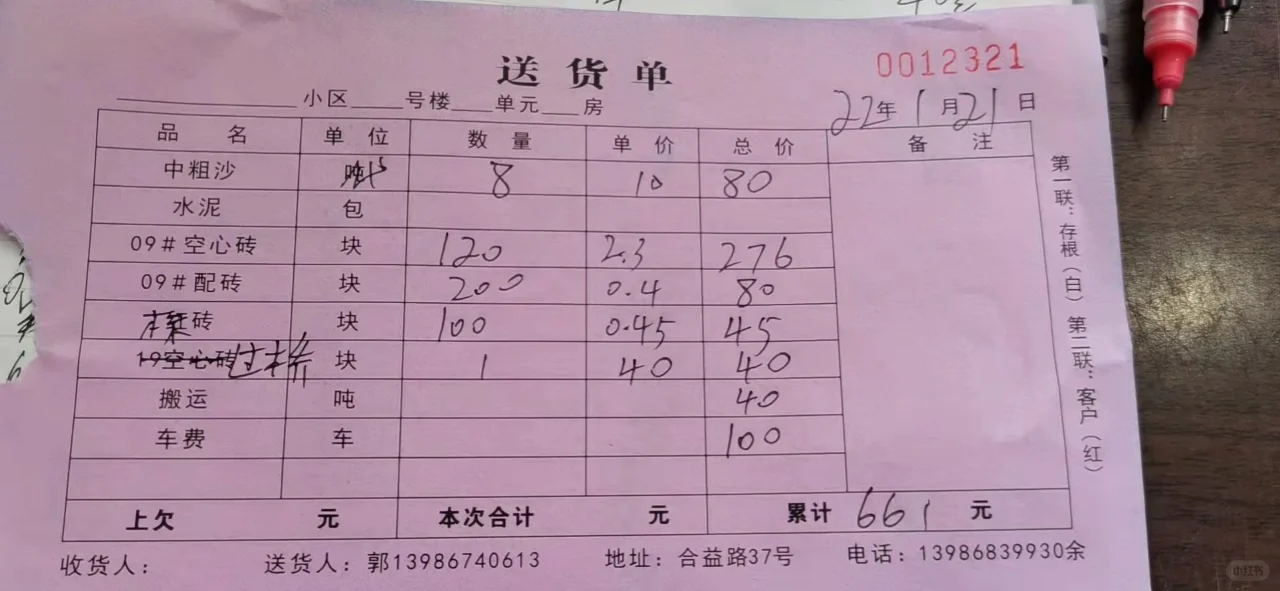 送货单 0012321
小区 号楼 单元 房 22年1月21日
品名 单位 数量 单价 总价 备注
中粗沙 8 10 80
水泥 包
09#空心砖 块 120 2.3 276
09#配砖 块 200 0.4 80
砖 块 100 0.45 45
19空心砖过桥 块 1 40 40
搬运 吨 40
车费 车 100
上欠 元 本次合计 元 累计 661 元
收货人： 送货人：郭13986740613 地址：合益路37号 电话：13986839930余
第一联：存根（白）第二联：客户（红）
小红书